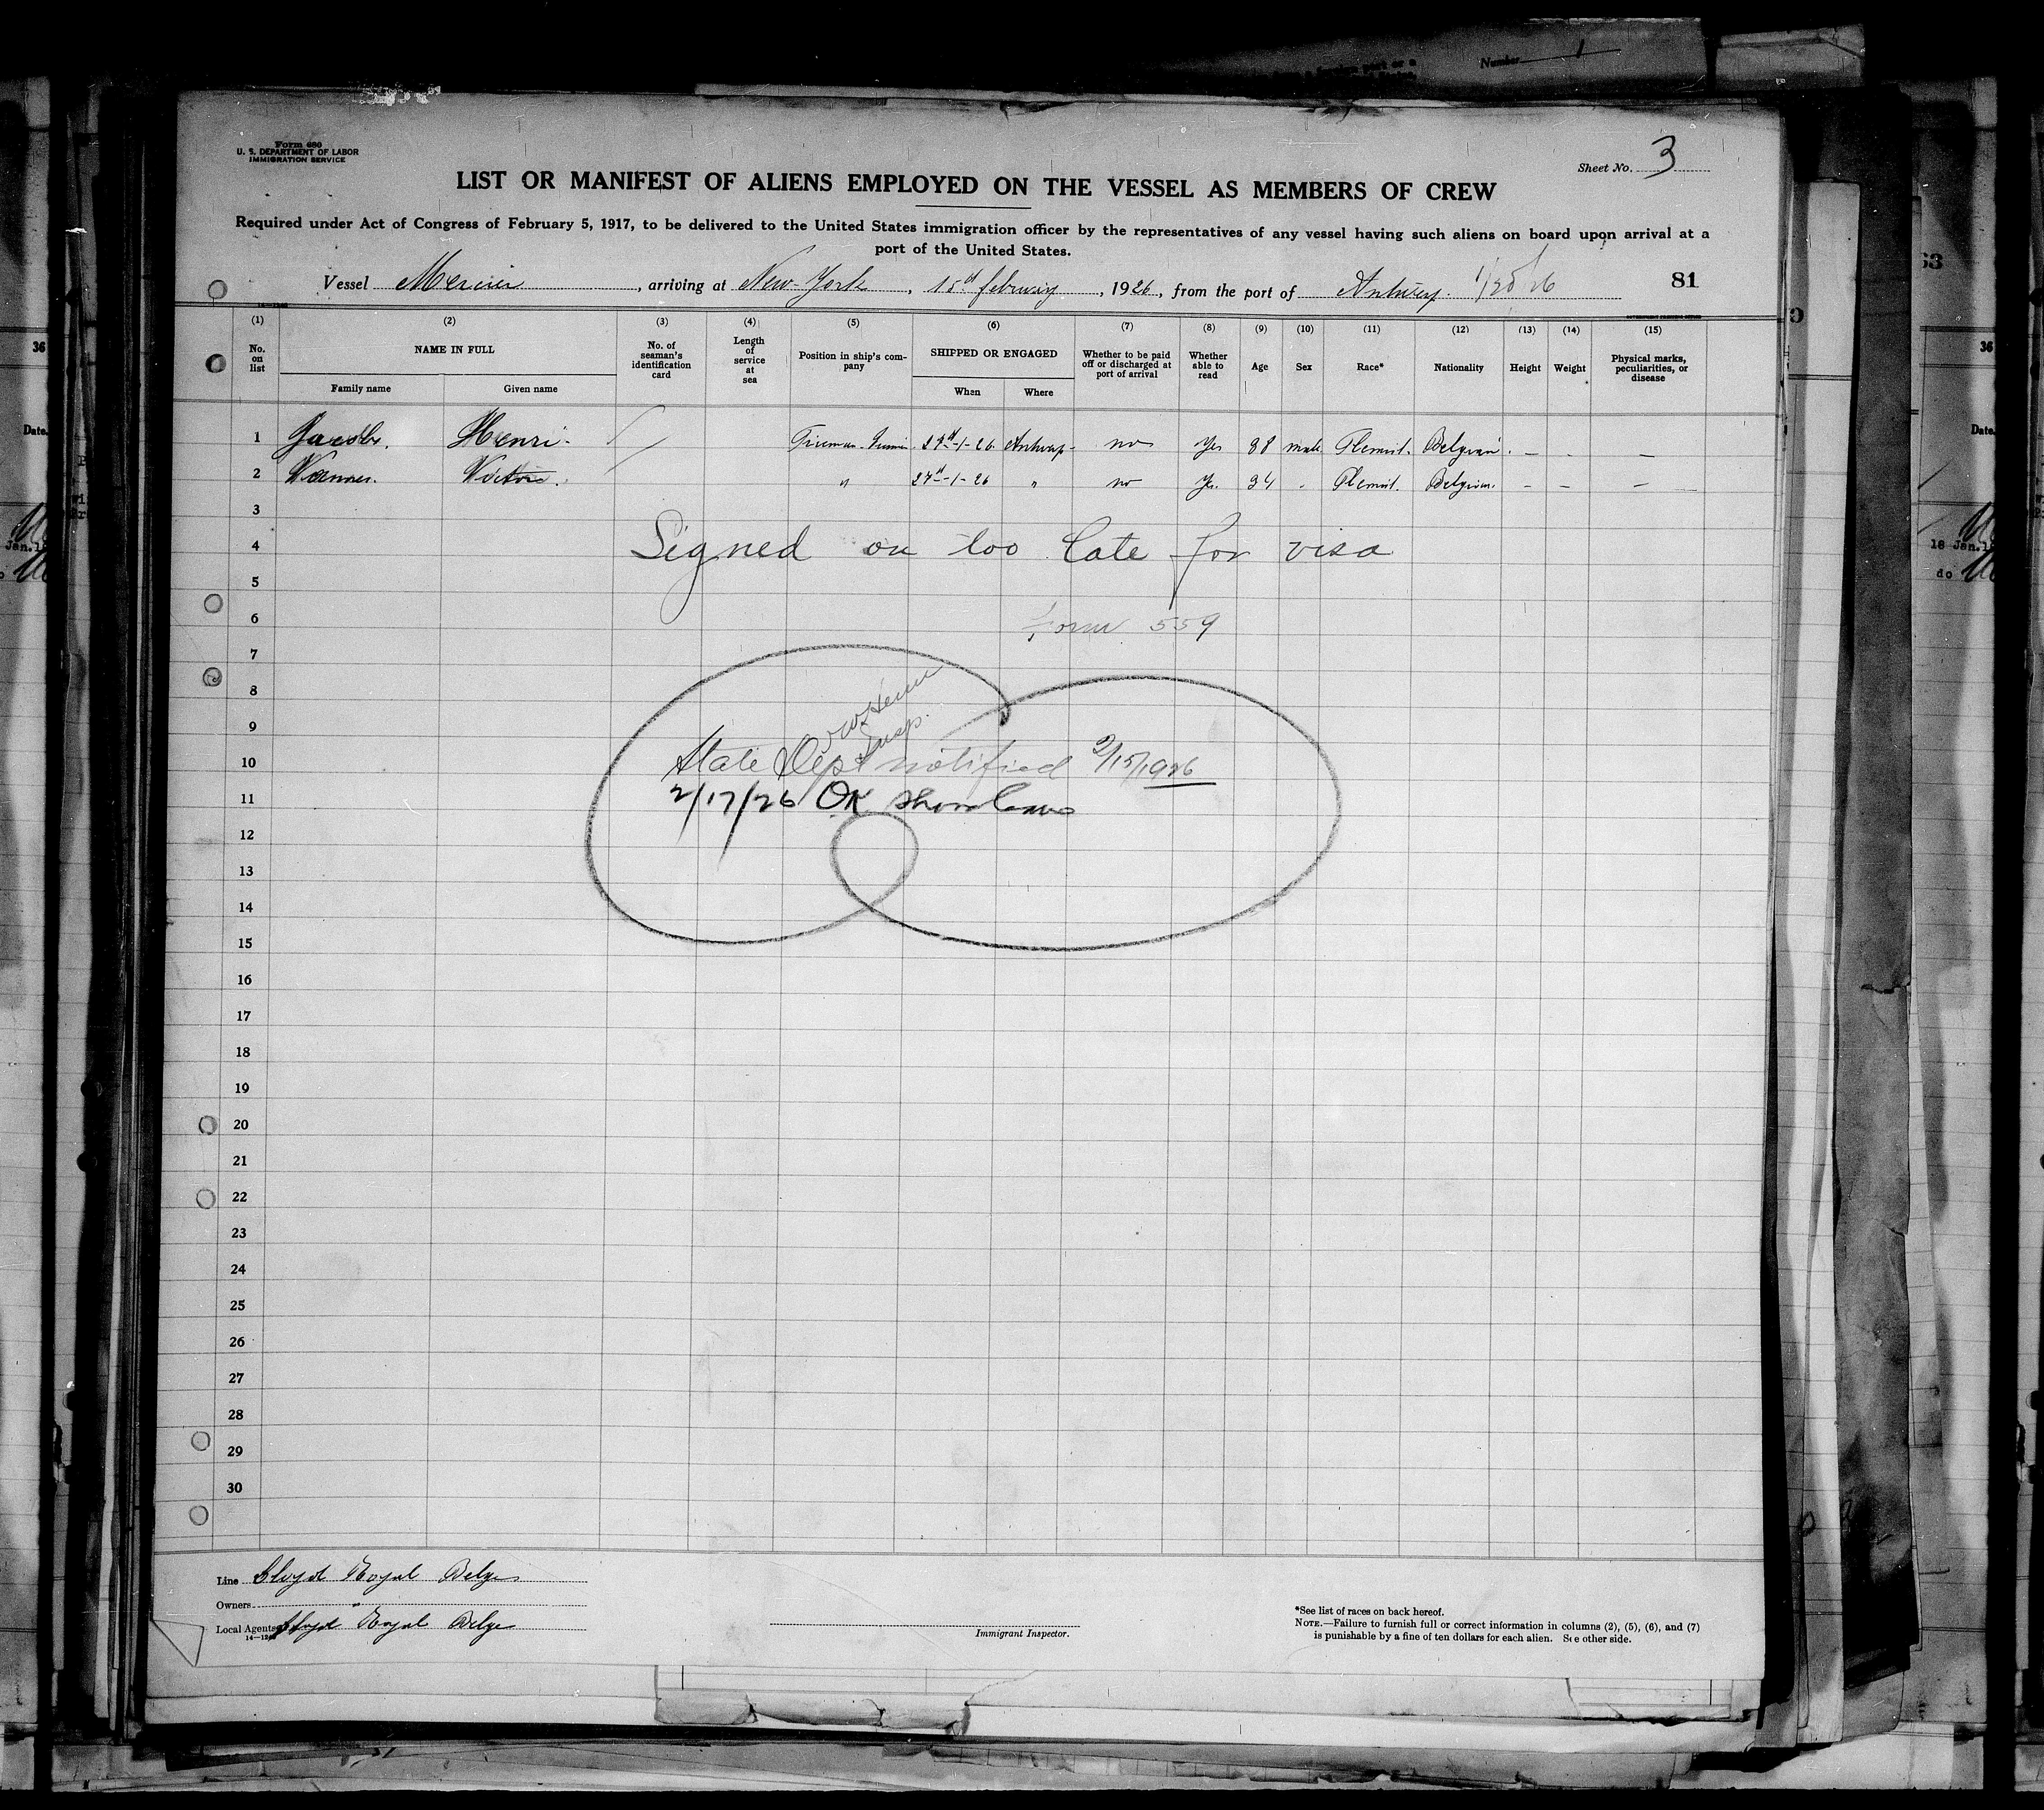 Number 1
Form 680
U. S. DEPARTMENT OF LABOR
IMMIGRATION SERVICE
Sheet No. 3
LIST OR MANIFEST OF ALIENS EMPLOYED ON THE VESSEL AS MEMBERS OF CREW
Required under Act of Congress of February 5, 1917, to be delivered to the United States immigration officer by the representatives of any vessel having such aliens on board upon arrival at a
port of the United States.
Vessel Mercier, arriving at New York, 15th february, 1926, from the port of Antwerp. 81
(1) (2) (3) (4) (5) (6) (7) (8) (9) (10) (11) (12) (13) (14) (15)
No. on list
NAME IN FULL
Family name Given name
No. of seaman's identification card
Length of service at sea
Position in ship's company
SHIPPED OR ENGAGED
When Where
Whether to be paid off or discharged at port of arrival
Whether able to read
Age
Sex
Race*
Nationality
Height
Weight
Physical marks, peculiarities, or disease
1 Jacobs. Henri. Fireman 27th-1-26 Antwerp no Yes 38 male Flemish. Belgian. - - -
2 Victor. " 27th-1-26 " no Yes. 34 Flemish. Belgian. - - -
3
4 Signed on too late for visa
5
6 Form 559
7
8
9 Insp.
10 State Dept notified 2/15/1926
11 2/17/26 OK
12
13
14
15
16
17
18
19
20
21
22
23
24
25
26
27
28
29
30
Line Lloyd Royal Belge
Owners
Local Agents Lloyd Royal Belge
14—1240
Immigrant Inspector.
*See list of races on back hereof.
NOTE.—Failure to furnish full or correct information in columns (2), (5), (6), and (7)
is punishable by a fine of ten dollars for each alien. See other side.
36
Date.
Jan.1
63
36
Date.
18 Jan.1
do